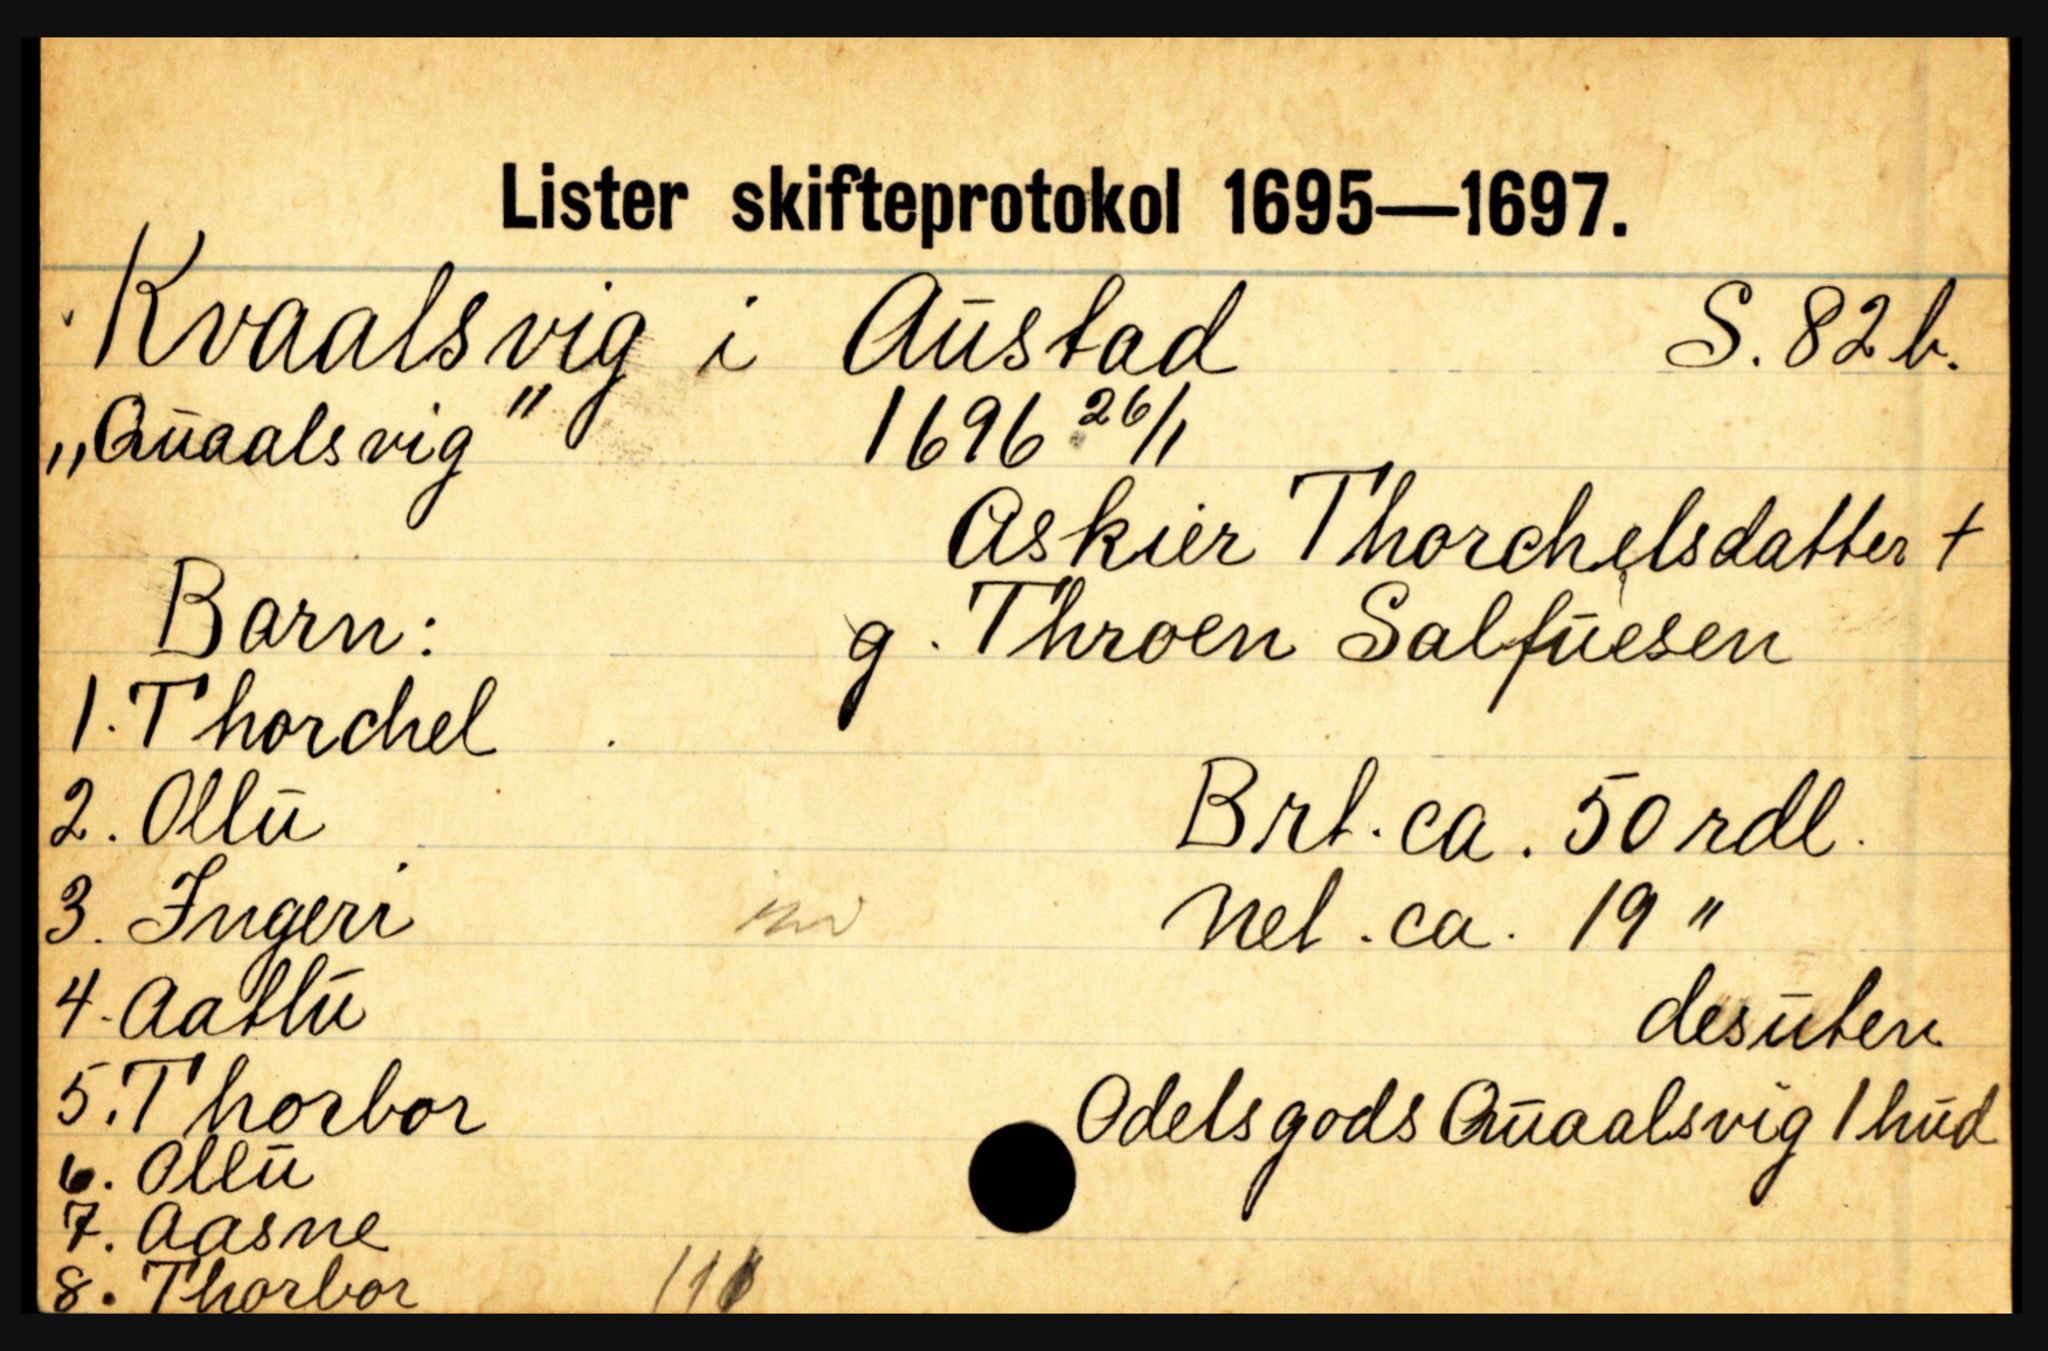 Lister skifteprotokol 1695—1697.
Kvaalsvig i Austad S. 82 b.
„Quaalsvig" 1696 26/11
Askier Thorchelsdatter †
Barn: g. Throen Salfuesen
1. Thorchel
2. Ollu Brt. ca. 50 rdl.
3. Ingeri Net. ca. 19 "
4. Aatlu desuten
5. Thorbor Odelsgods Quaalsvig 1 hud
6. Ollu
7. Aasne
8. Thorbor